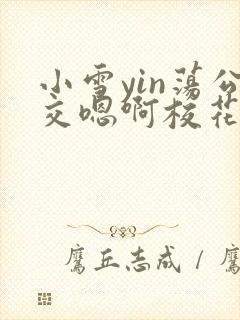 小雪yin荡公
交嗯啊校花
鹰丘志成 / 鹰